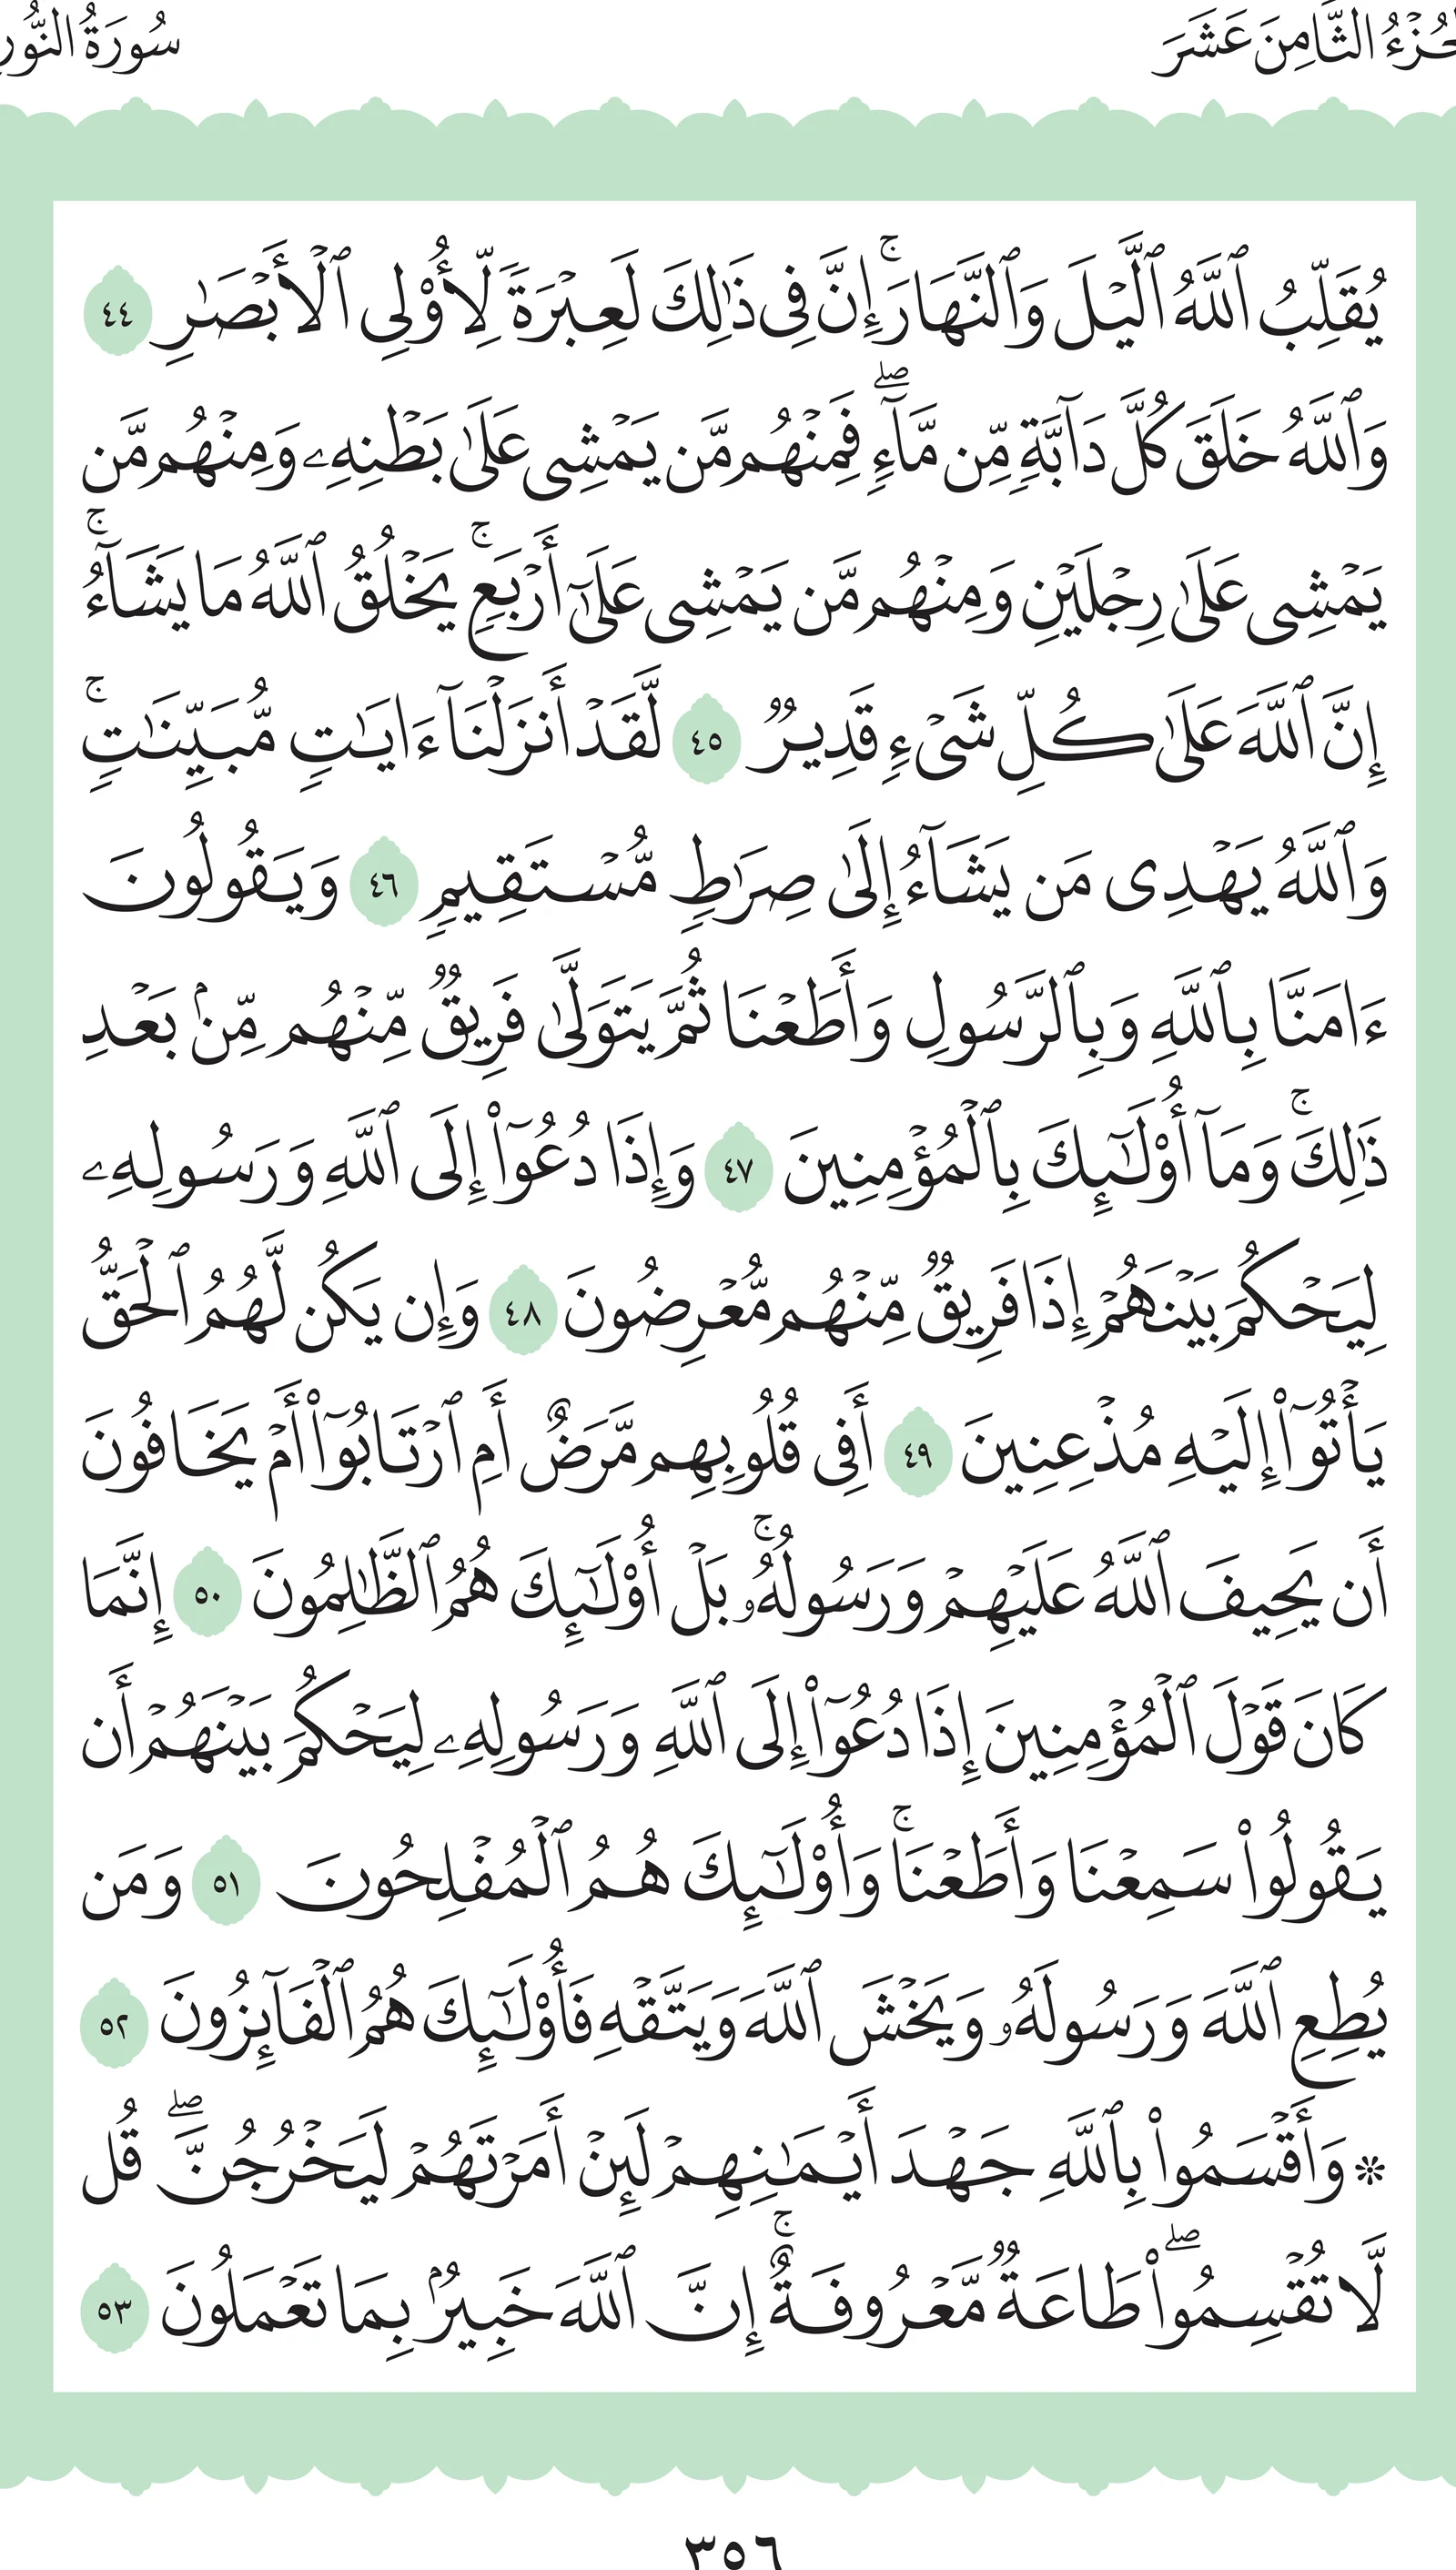 الجُزْءُ الثَّامِنَ عَشَرَ سُورَةُ النُّورِ
يُقَلِّبُ ٱللَّهُ ٱلَّيۡلَ وَٱلنَّهَارَۚ إِنَّ فِي ذَٰلِكَ لَعِبۡرَةٗ لِّأُوْلِي ٱلۡأَبۡصَٰرِ ٤٤
وَٱللَّهُ خَلَقَ كُلَّ دَآبَّةٖ مِّن مَّآءٖۖ فَمِنۡهُم مَّن يَمۡشِي عَلَىٰ بَطۡنِهِۦ وَمِنۡهُم مَّن
يَمۡشِي عَلَىٰ رِجۡلَيۡنِ وَمِنۡهُم مَّن يَمۡشِي عَلَىٰٓ أَرۡبَعٖۚ يَخۡلُقُ ٱللَّهُ مَا يَشَآءُۚ
إِنَّ ٱللَّهَ عَلَىٰ كُلِّ شَيۡءٖ قَدِيرٞ ٤٥ لَّقَدۡ أَنزَلۡنَآ ءَايَٰتٖ مُّبَيِّنَٰتٖۚ
وَٱللَّهُ يَهۡدِي مَن يَشَآءُ إِلَىٰ صِرَٰطٖ مُّسۡتَقِيمٖ ٤٦ وَيَقُولُونَ
ءَامَنَّا بِٱللَّهِ وَبِٱلرَّسُولِ وَأَطَعۡنَا ثُمَّ يَتَوَلَّىٰ فَرِيقٞ مِّنۡهُم مِّنۢ بَعۡدِ
ذَٰلِكَۚ وَمَآ أُوْلَٰٓئِكَ بِٱلۡمُؤۡمِنِينَ ٤٧ وَإِذَا دُعُوٓاْ إِلَى ٱللَّهِ وَرَسُولِهِۦ
لِيَحۡكُمَ بَيۡنَهُمۡ إِذَا فَرِيقٞ مِّنۡهُم مُّعۡرِضُونَ ٤٨ وَإِن يَكُن لَّهُمُ ٱلۡحَقُّ
يَأۡتُوٓاْ إِلَيۡهِ مُذۡعِنِينَ ٤٩ أَفِي قُلُوبِهِم مَّرَضٌ أَمِ ٱرۡتَابُوٓاْ أَمۡ يَخَافُونَ
أَن يَحِيفَ ٱللَّهُ عَلَيۡهِمۡ وَرَسُولُهُۥۚ بَلۡ أُوْلَٰٓئِكَ هُمُ ٱلظَّٰلِمُونَ ٥٠ إِنَّمَا
كَانَ قَوۡلَ ٱلۡمُؤۡمِنِينَ إِذَا دُعُوٓاْ إِلَى ٱللَّهِ وَرَسُولِهِۦ لِيَحۡكُمَ بَيۡنَهُمۡ أَن
يَقُولُواْ سَمِعۡنَا وَأَطَعۡنَاۚ وَأُوْلَٰٓئِكَ هُمُ ٱلۡمُفۡلِحُونَ ٥١ وَمَن
يُطِعِ ٱللَّهَ وَرَسُولَهُۥ وَيَخۡشَ ٱللَّهَ وَيَتَّقۡهِ فَأُوْلَٰٓئِكَ هُمُ ٱلۡفَآئِزُونَ ٥٢
۞ وَأَقۡسَمُواْ بِٱللَّهِ جَهۡدَ أَيۡمَٰنِهِمۡ لَئِنۡ أَمَرۡتَهُمۡ لَيَخۡرُجُنَّۖ قُل
لَّا تُقۡسِمُواْۖ طَاعَةٞ مَّعۡرُوفَةٌۚ إِنَّ ٱللَّهَ خَبِيرُۢ بِمَا تَعۡمَلُونَ ٥٣
٣٥٦